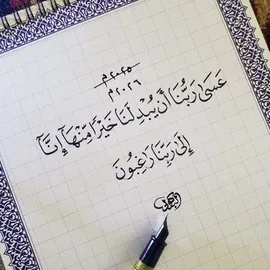 ٢٠٢٥م
٢٠٢٦م
عَسَىٰ رَبُّنَا أَن يُبْدِلَنَا خَيْرًا مِّنْهَآ إِنَّآ
إِلَىٰ رَبِّنَا رَٰغِبُونَ